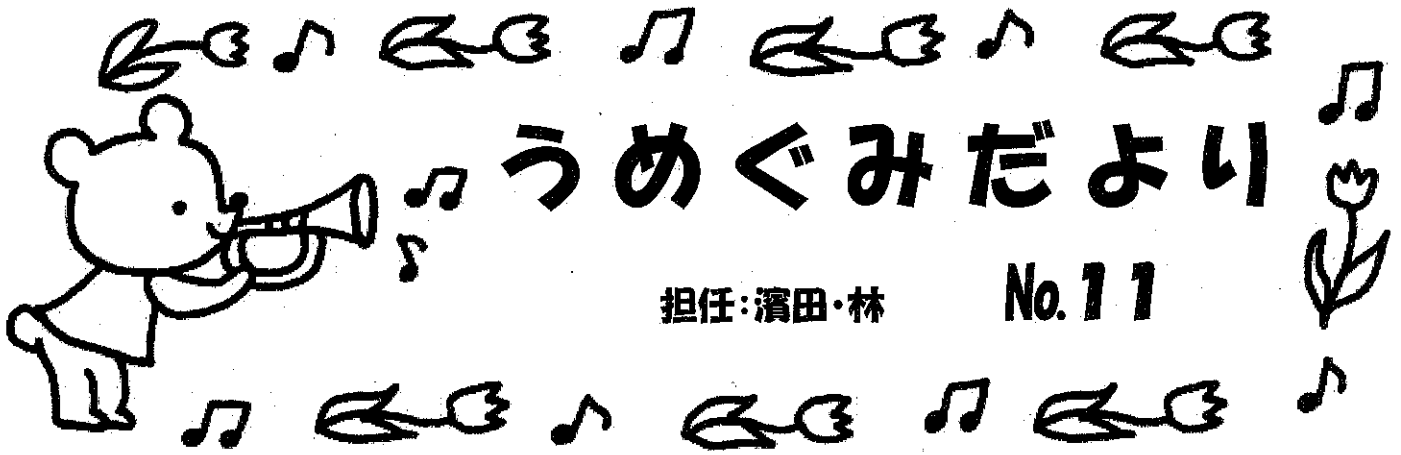 うめぐみだより
担任:濱田・林 No.11